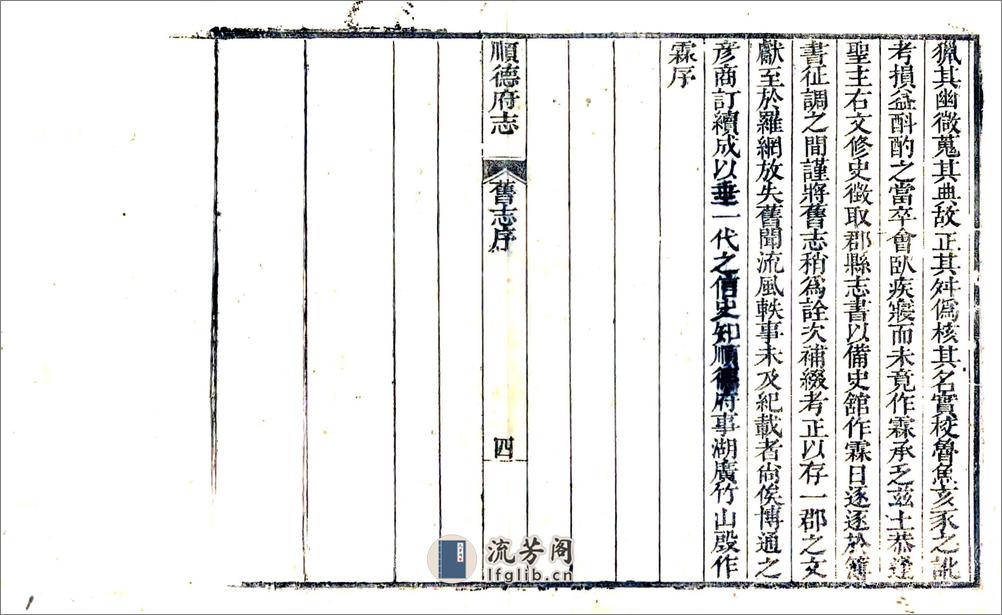 獵其幽微蒐其典故正其舛僞核其名實秡魯魚亥豕之訛
考損益斟酌之當卒會臥疾寢而未竟作霖承乏茲土恭逢
聖主右文修史徵取郡縣志書以備史舘作霖日逐逐於簿
書征調之間謹將舊志稍爲詮次補綴考正以存一郡之文
獻至於羅網放失舊聞流風軼事未及紀載者尙俟博通之
彥商訂續成以垂一代之信史知順德府事湖廣竹山殷作
霖序
順德府志
舊志序
四
流芳阁
lfglib.cn